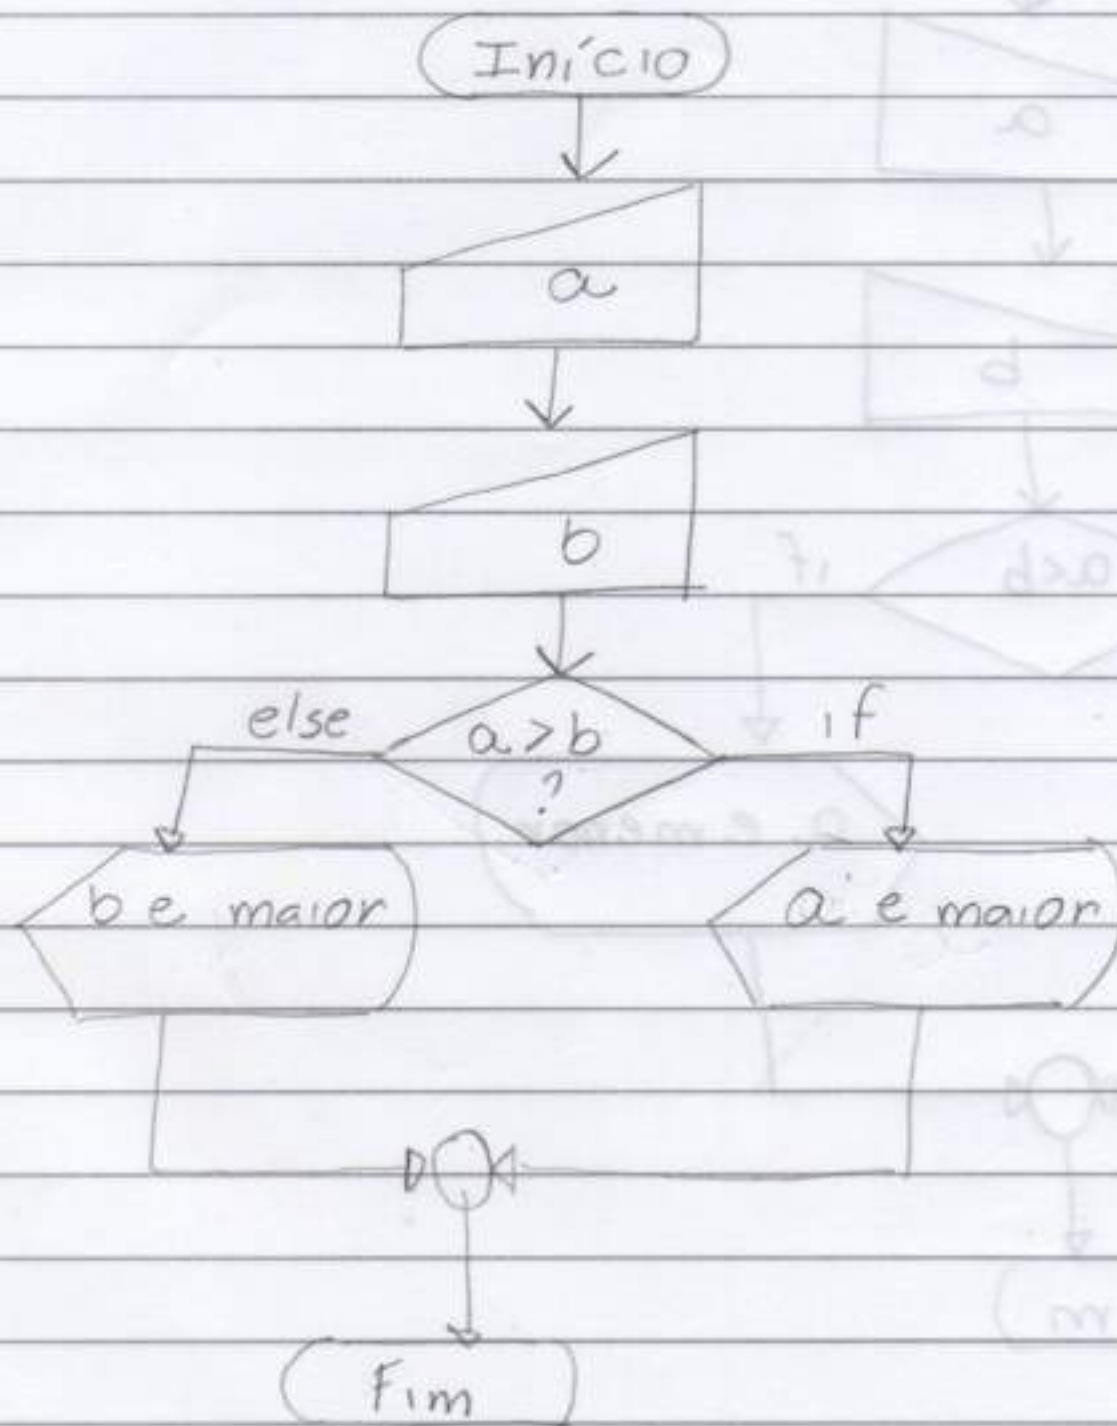 Início
a
b
else
a>b
?
if
b e maior
a é maior
Fim